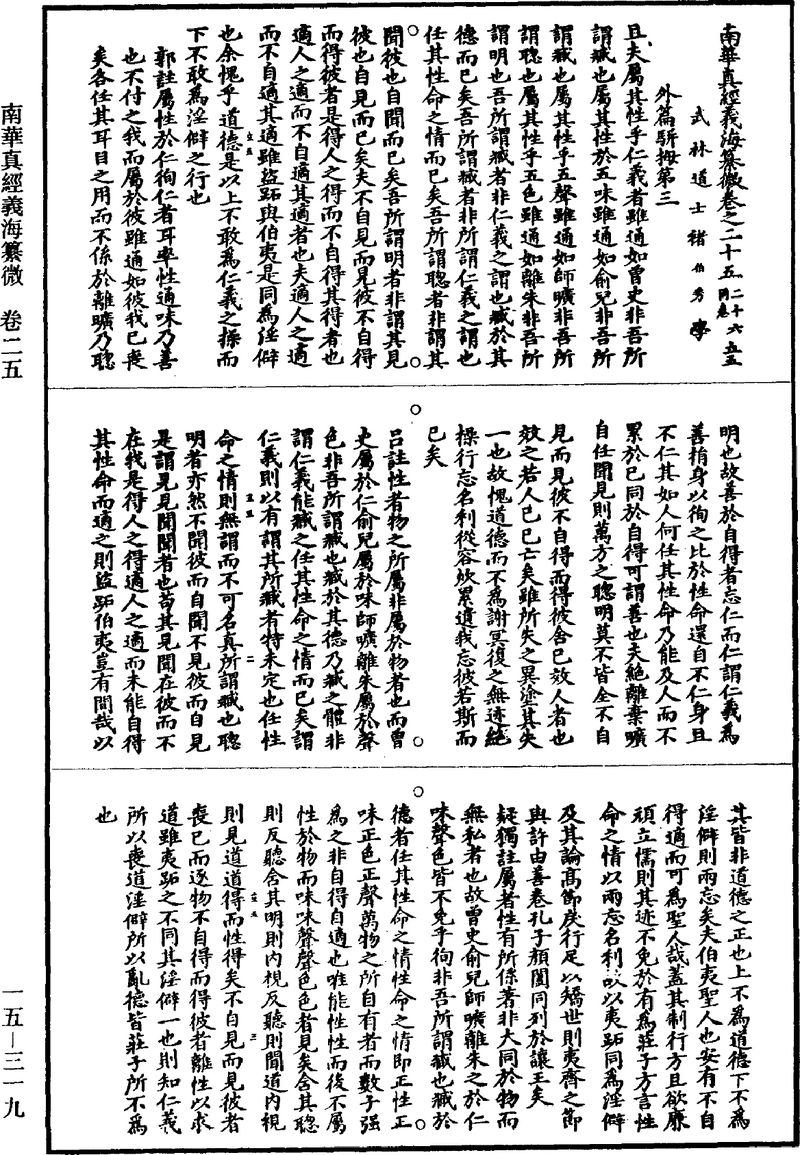 南華真經義海纂微卷之二十五 二十六同卷 五五
武林道士褚伯秀學
外篇駢拇第三
且夫屬其性乎仁義者雖通如曾史非吾所
謂臧也屬其性於五味雖通如俞兒非吾所
謂臧也屬其性乎五聲雖通如師曠非吾所
謂聰也屬其性乎五色雖通如離朱非吾所
謂明也吾所謂臧者非仁義之謂也臧於其
德而已矣吾所謂臧者非所謂仁義之謂也
任其性命之情而已矣吾所謂聰者非謂其
聞彼也自聞而已矣吾所謂明者非謂其見
彼也自見而已矣夫不自見而見彼不自得
而得彼者是得人之得而不自得其得者也
適人之適而不自適其適者也夫適人之適
而不自適其適雖盜跖與伯夷是同為淫僻
也余愧乎道德是以上不敢為仁義之操而
下不敢為淫僻之行也
郭註屬性於仁徇仁者耳率性通味乃善
也不付之我而屬於彼雖通如彼我已喪
矣各任其耳目之用而不係於離曠乃聰
明也故善於自得者忘仁而仁謂仁義為
善指身以徇之比於性命還自不仁身且
不仁其如人何任其性命乃能及人而不
累於已同於自得可謂善也夫絕離棄曠
自任聞見則萬方之聰明莫不皆全不自
見而見彼不自得而得彼舍已效人者也
效之若人已已亡矣雖所失之異塗其失
一也故愧道德而不為謝冥復之無迹絕
操行忘名利從容吹累遺我忘彼若斯而
已矣
呂註性者物之所屬非屬於物者也而曾
史屬於仁俞兒屬於味師曠離朱屬於聲
色非吾所謂臧也臧於其德乃臧之體非
謂仁義能臧之任其性命之情而已矣謂
仁義則以有謂其所臧者特未定也任性
命之情則無謂而不可名真所謂臧也聰
明者亦然不聞彼而自聞不見彼而自見
是謂見見聞聞者也苟其見聞在彼而不
在我是得人之得適人之適而未能自得
其性命而適之則盜跖伯夷豈有間哉以
其皆非道德之正也上不為道德下不為
淫僻則兩忘矣夫伯夷聖人也安有不自
得適而可為聖人哉蓋其制行方且欲廉
頑立懦則其迹不免於有為莊子方言性
命之情以兩忘名利故以夷跖同為淫僻
及其論高節戾行足以矯世則夷齊之節
與許由善卷孔子顏闔同列於讓王矣
疑獨註屬者性有所係著非大同於物而
無私者也故曾史俞兒師曠離朱之於仁
味聲色皆不免乎徇非吾所謂臧也臧於
德者任其性命之情性命之情即正性正
味正色正聲萬物之所自有者而數子強
為之非自得自適也唯能性性而後不屬
性於物而味味聲聲色色者見矣舍其聰
則反聽舍其明則內視反聽則聞道內視
則見道道得而性得矣不自見而見彼者
喪已而逐物不自得而得彼者離性以求
道雖夷跖之不同其淫僻一也則知仁義
所以喪道淫僻所以亂德皆莊子所不為
也
南華真經義海纂微 卷二五
一五—三一九